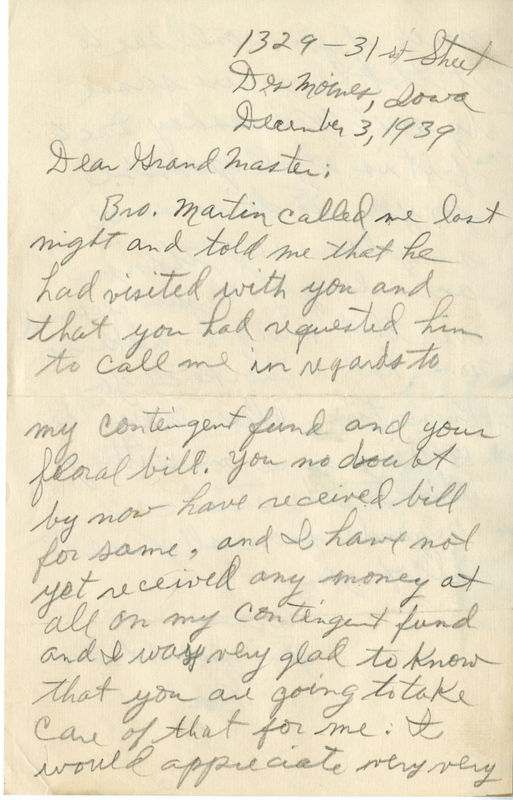 1329 - 31st Street
Des Moines, Iowa
December 3, 1939
Dear Grand Master:
Bro. Martin called me last
night and told me that he
had visited with you and
that you had requested him
to call me in regards to
my contingent fund and your
floral bill. You no doubt
by now have received bill
for same, and I have not
yet received any money at
all on my contingent fund
and I was very glad to know
that you are going to take
care of that for me. I
would appreciate very very